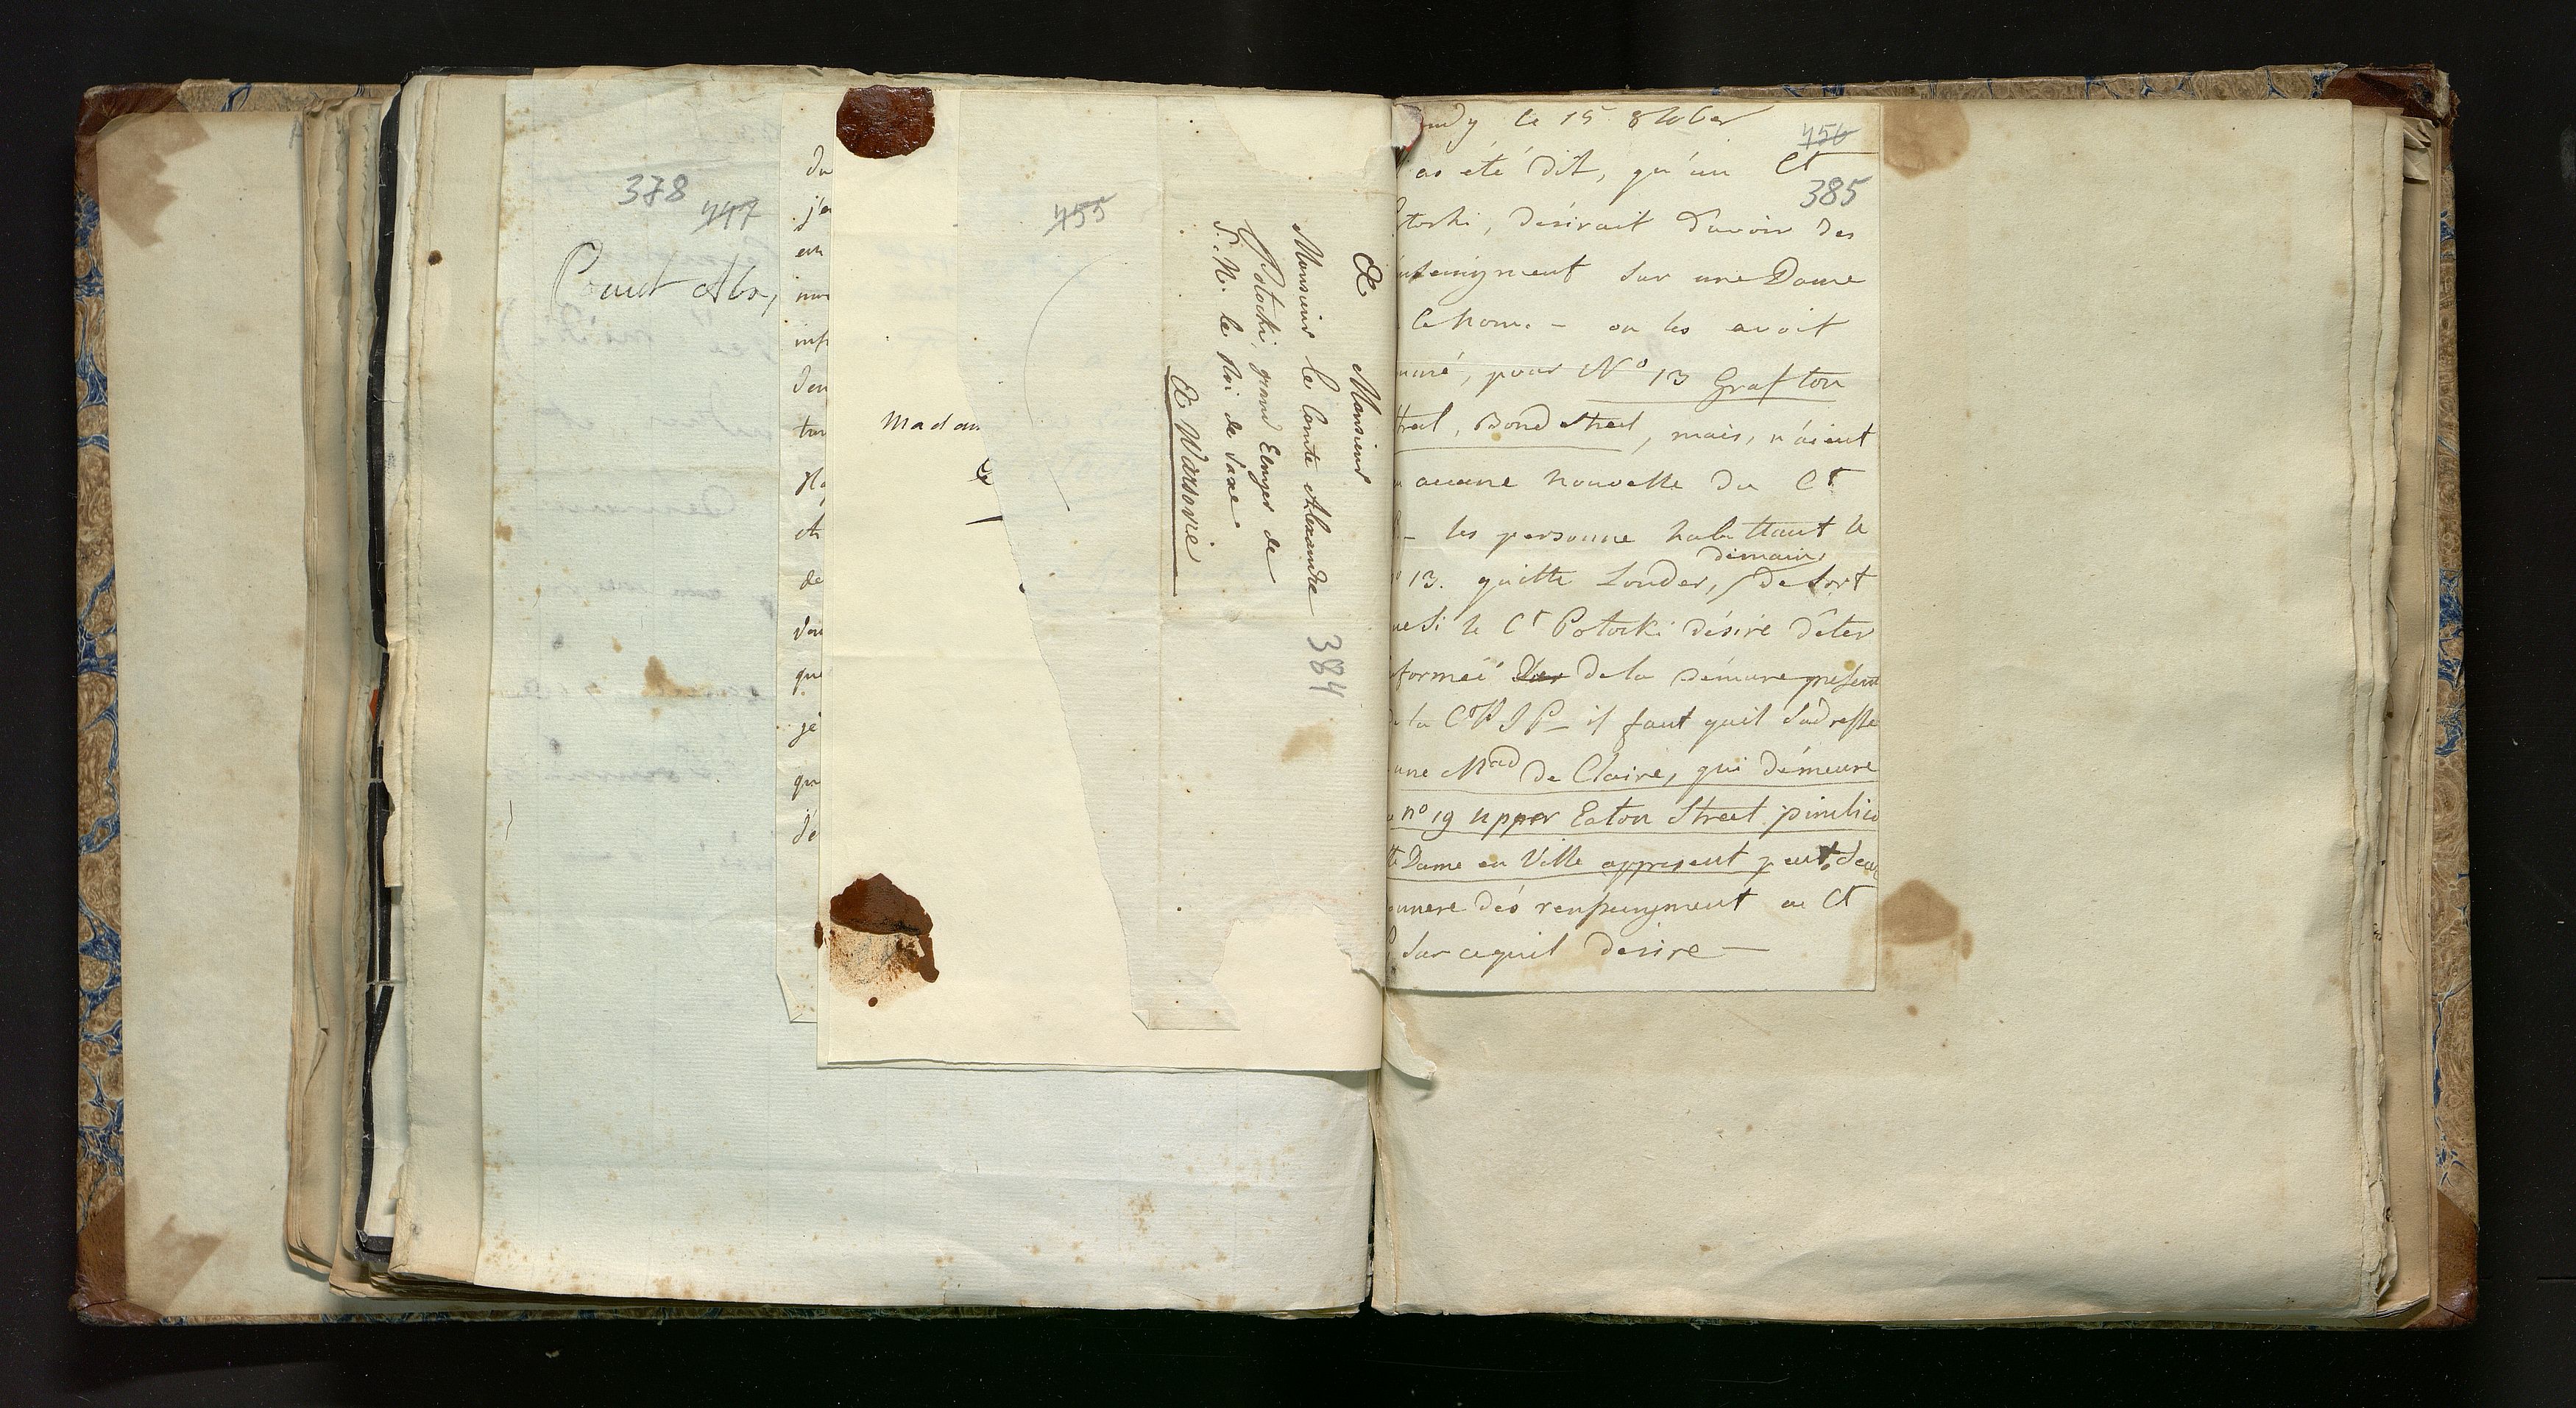 378
447
Comt Alex,
du
j'ai
en
inf
don
tou
et
de
vou
que
je
qu
de
Madam
455
A Monsieur
Monsieur le Comte Alexandre
Potocki, grand Ecuyer de
S. M. le Roi de Saxe
A Varsovie
384
456
385
udy le 15 8tober
as été dit, qu'un Ct
otocki, desirait d'avoir des
nseingment sur une Dame
le nom. – on les avoit
, pour No 13 Grafton
treet, Bond street, mais, n'aient
aucune nouvelle du Ct
P – les personne habittant le
o 13. quitte Londer, demain, de sort
ue si le Ct Potocki désire dêter
formeé de la démure present
la Ctss P – il faut quil s'adresse
une Mad de Claire, qui démeure
no 19 upper Eaton Street pimlico
tte Dame en Ville appresent peut
onnere dés renseingment au Ct
P sur cequil desire –